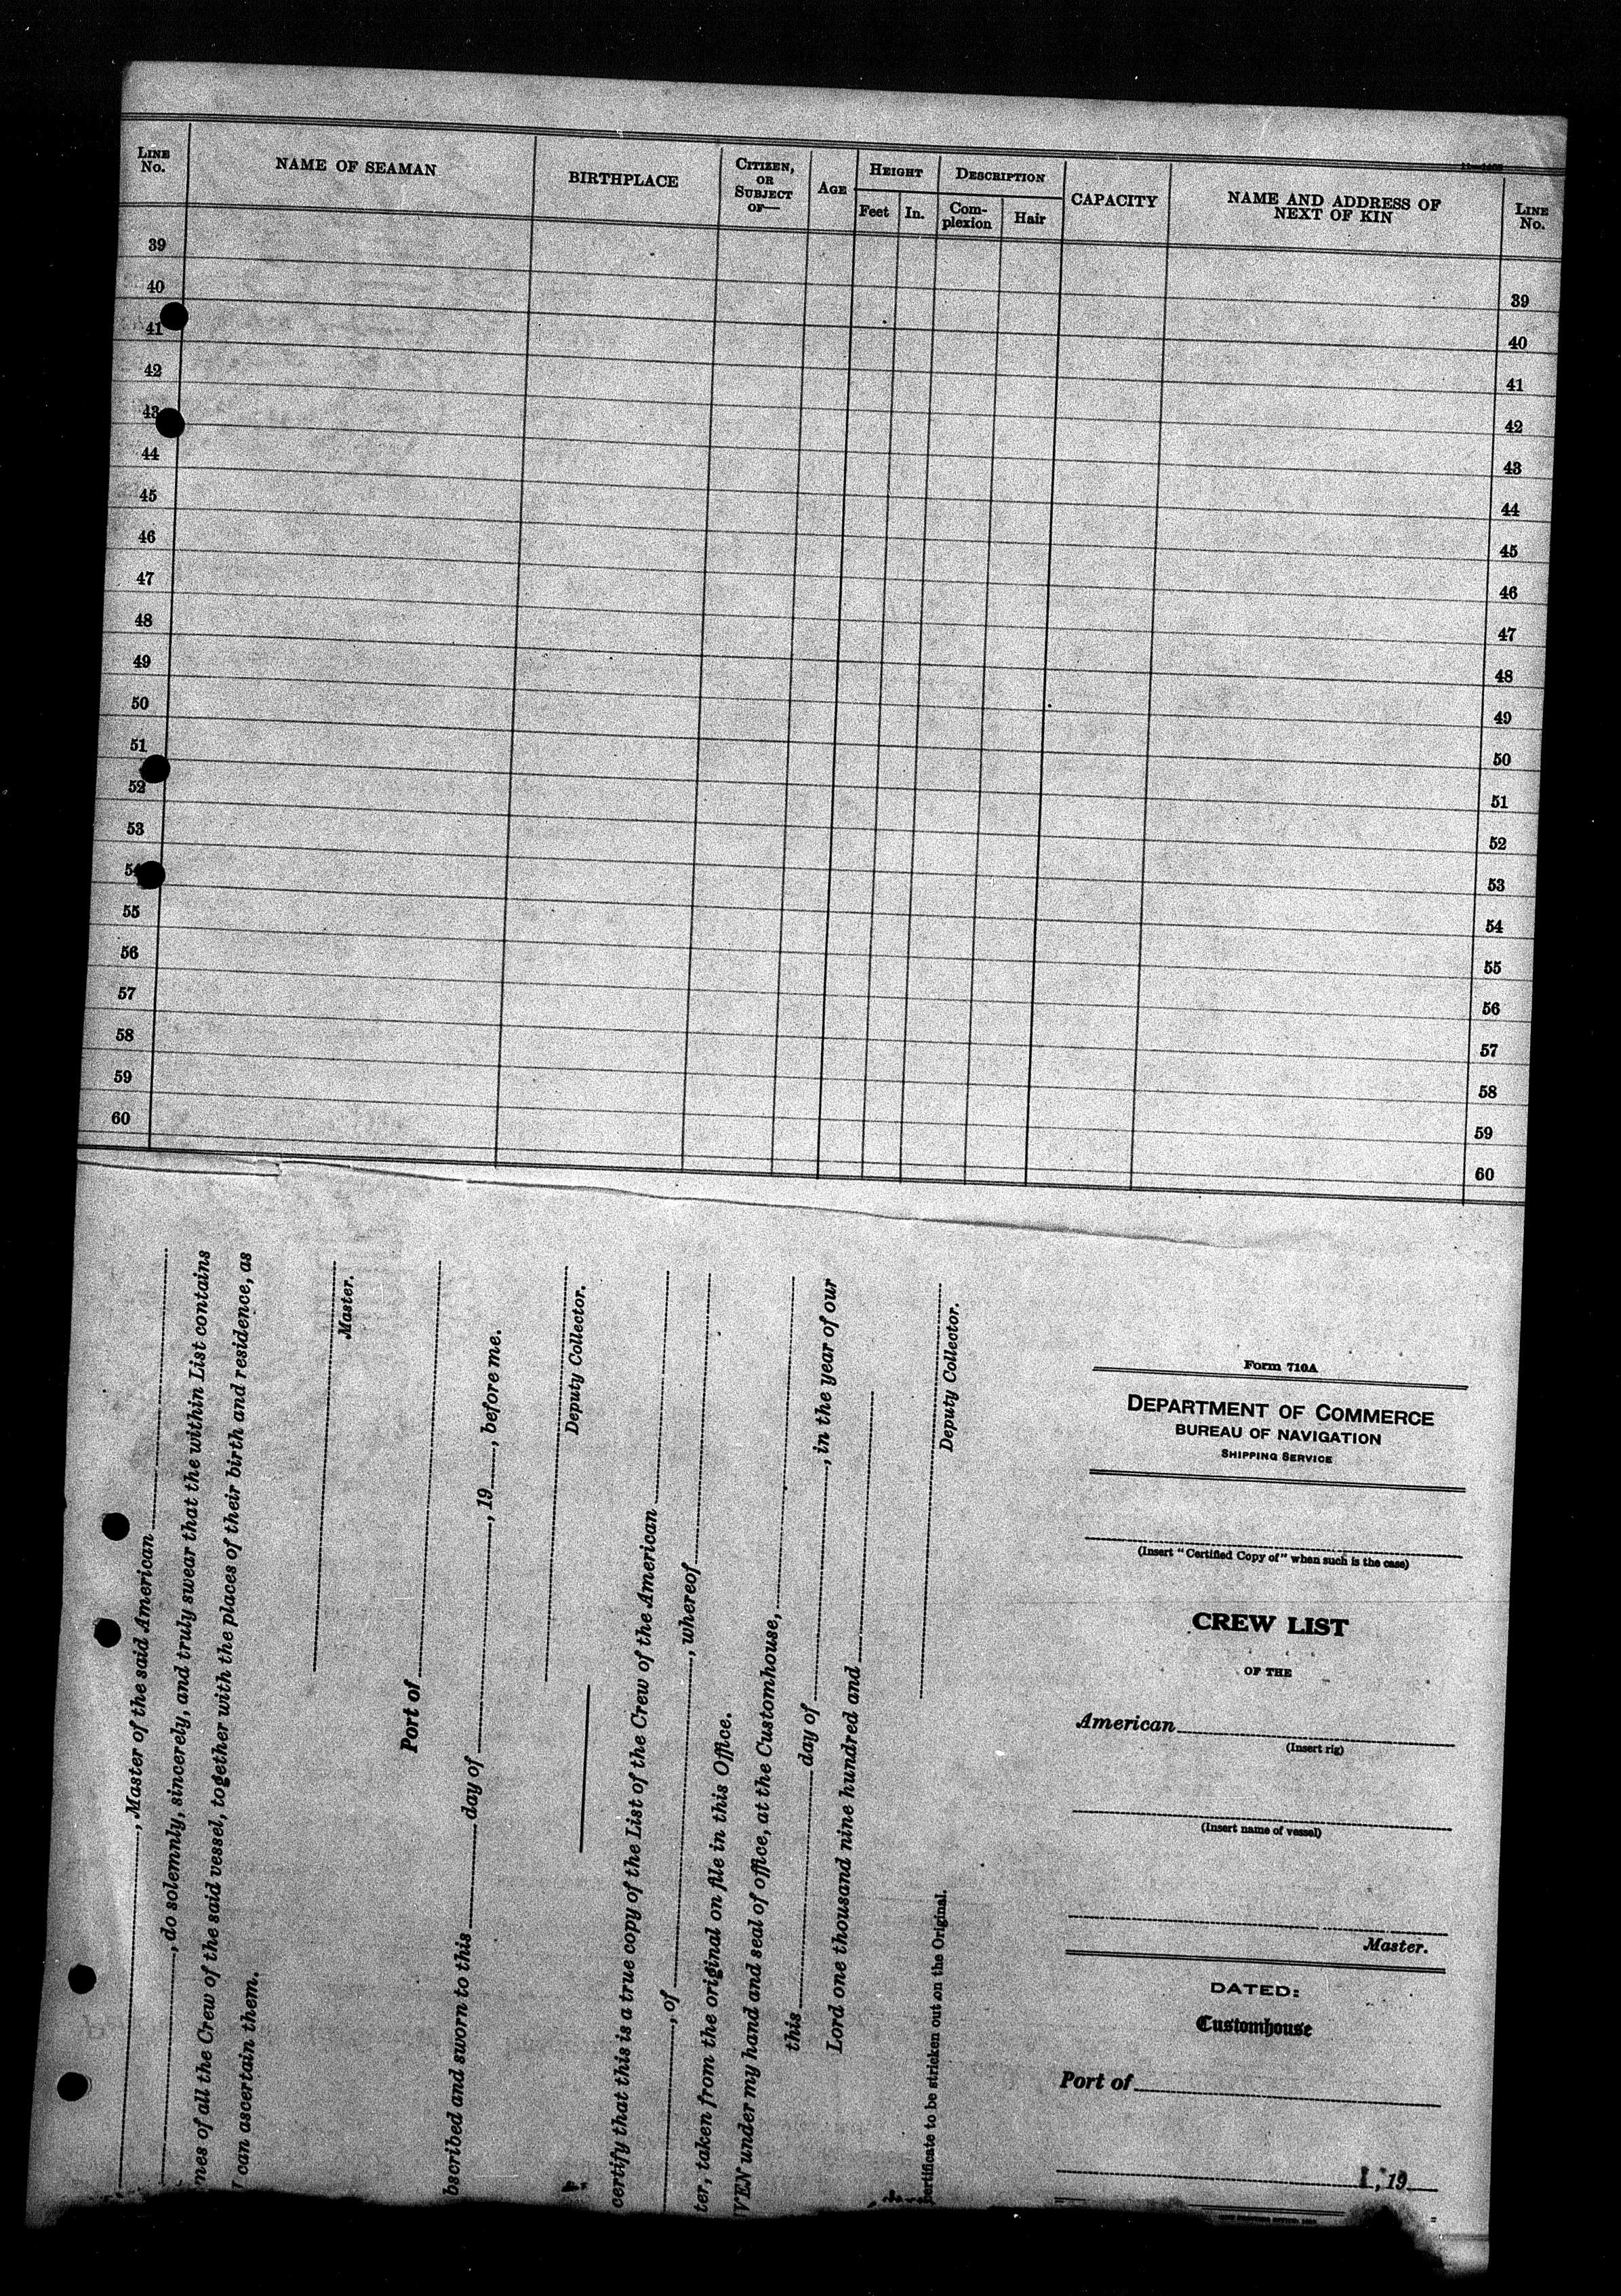 11—1408
LINE No. NAME OF SEAMAN BIRTHPLACE CITIZEN, OR SUBJECT OF— AGE HEIGHT DESCRIPTION CAPACITY NAME AND ADDRESS OF NEXT OF KIN LINE No.
Feet In. Complexion Hair
39 39
40 40
41 41
42 42
43 43
44 44
45 45
46 46
47 47
48 48
49 49
50 50
51 51
52 52
53 53
54 54
55 55
56 56
57 57
58 58
59 59
60 60
, Master of the said American
, do solemnly, sincerely, and truly swear that the within List contains
mes of all the Crew of the said vessel, together with the places of their birth and residence, as
I can ascertain them.
Master.
Port of
bscribed and sworn to this day of , 19 , before me.
Deputy Collector.
certify that this is a true copy of the List of the Crew of the American
, of , whereof
ter, taken from the original on file in this Office.
VEN under my hand and seal of office, at the Customhouse,
this day of , in the year of our
Lord one thousand nine hundred and
Deputy Collector.
ertificate to be stricken out on the Original.
Form 710A
DEPARTMENT OF COMMERCE
BUREAU OF NAVIGATION
SHIPPING SERVICE
(Insert "Certified Copy of" when such is the case)
CREW LIST
OF THE
American
(Insert rig)
(Insert name of vessel)
Master.
DATED:
Customhouse
Port of
, 19